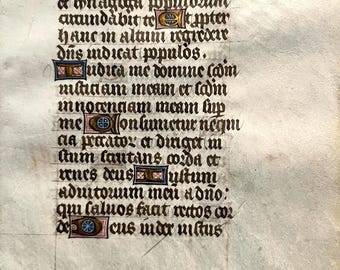 et congrega populorum
circundabit te Et ppter
hanc in altum regredere
dñs iudicat populos.
Iudica me domine scdm
iusticiam meam et scdm
innocenciam meam sup
me Consumetur nequi
cia peccator et diriget in
stum scrutans corda et
renes deus Iustum
adiutorium meū a dño:
qui saluos facit rectos cor
de Deus iudex iustus